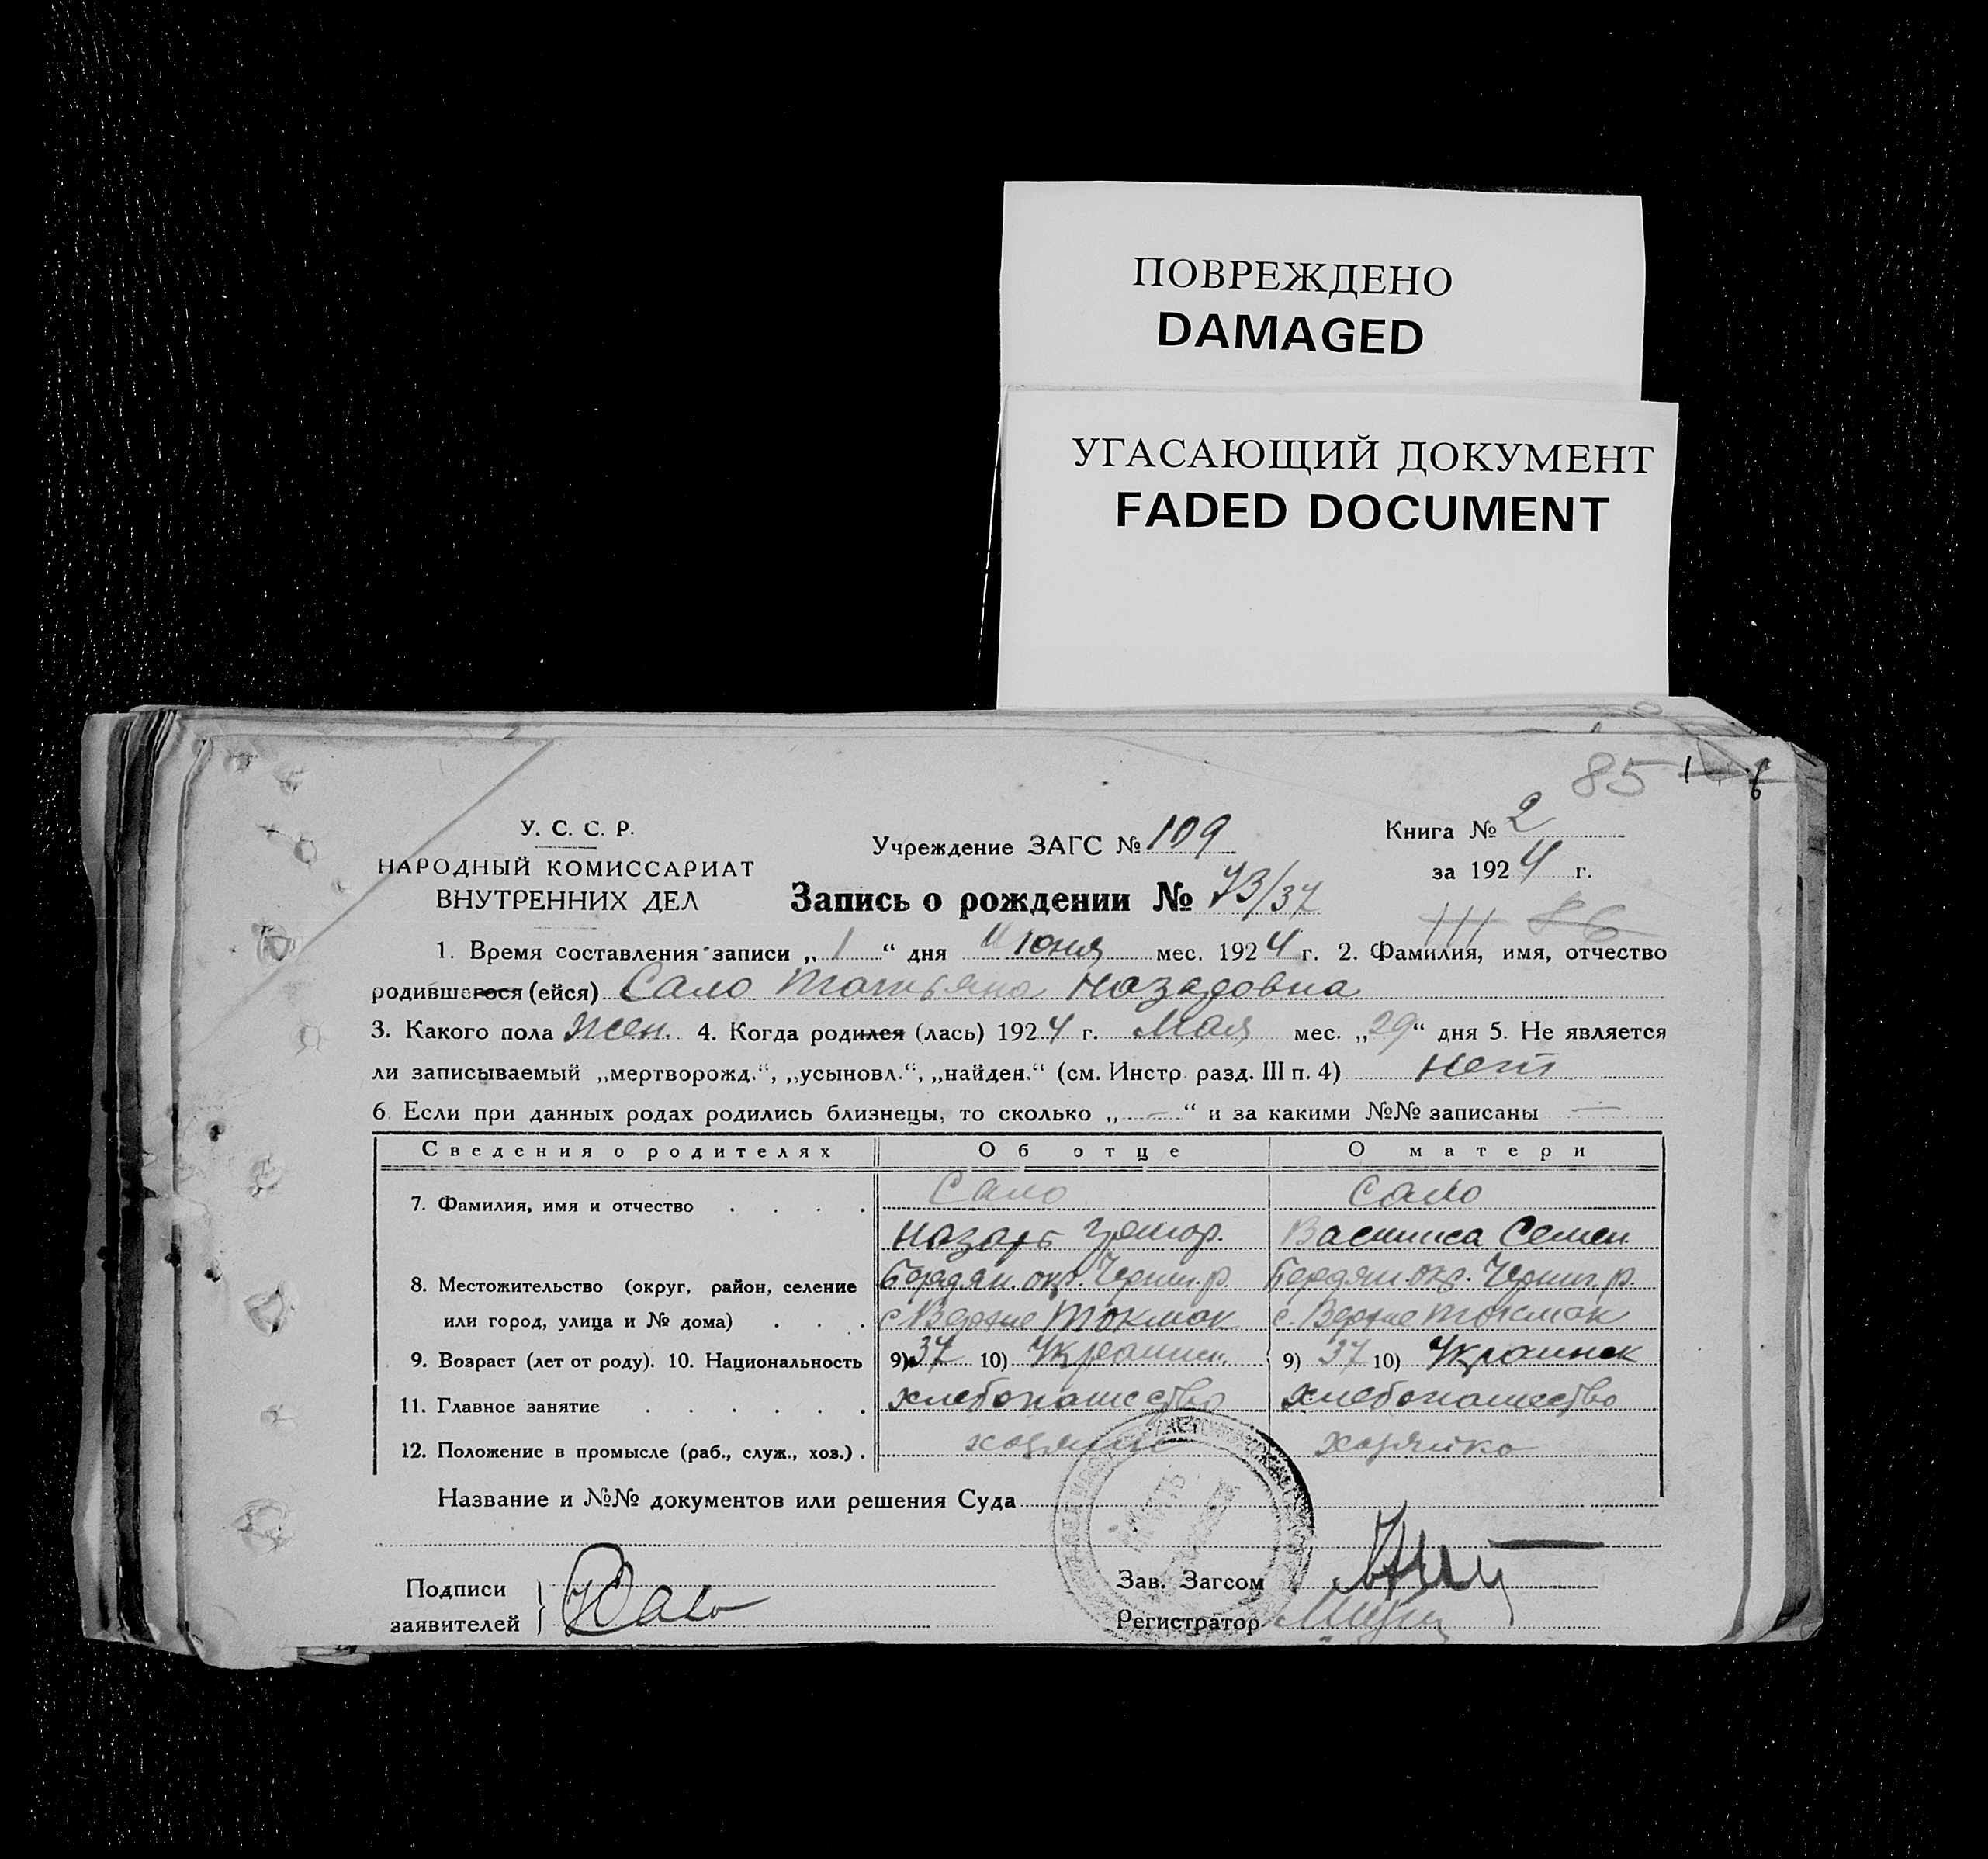 ПОВРЕЖДЕНО
DAMAGED
УГАСАЮЩИЙ ДОКУМЕНТ
FADED DOCUMENT
85
У. С. С. Р.
НАРОДНЫЙ КОМИССАРИАТ
ВНУТРЕННИХ ДЕЛ
Учреждение ЗАГС № 109
Книга № 2
за 1924 г.
Запись о рождении № 73/37
III 86
1. Время составления записи „ 1 “ дня Июня мес. 1924 г. 2. Фамилия, имя, отчество
родившегося (ейся) Сало Татьяна Назаровна
3. Какого пола жен. 4. Когда родился (лась) 1924 г. Мая мес. „29“ дня 5. Не является
ли записываемый „мертворожд.“, „усыновл.“, „найден.“ (см. Инстр. разд. III п. 4) нет
6. Если при данных родах родились близнецы, то сколько „ — “ и за какими №№ записаны —
Сведения о родителях Об отце О матери
7. Фамилия, имя и отчество . . . . Сало Сало
Назарь Григор. Васшиса Семен.
8. Местожительство (округ, район, селение Бердян. окр. Черниг. р. Бердян. окр. Черниг. р.
или город, улица и № дома) . . . с. Верхне Токмак с. Верхне Токмак
9. Возраст (лет от роду). 10. Национальность 9) 37 10) Украинц. 9) 37 10) Украинск
11. Главное занятие . . . . . . хлебопашество хлебопашество
12. Положение в промысле (раб., служ., хоз.) . хозяин хозяйка
Название и №№ документов или решения Суда
Подписи
заявителей } Сало
Зав. Загсом
Регистратор